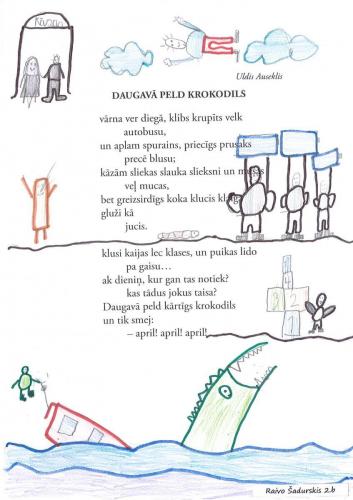 Uldis Auseklis
DAUGAVĀ PELD KROKODILS
vārna ver diegā, klibs krupīts velk
autobusu,
un aplam spurains, priecīgs prusaks
precē blusu;
kāzām sliekas slauka slieksni un mušas
veļ mucas,
bet greizsirdīgs koka klucis klaigā
gluži kā
jucis.
klusi kaijas lec klases, un puikas lido
pa gaisu…
ak dieniņ, kur gan tas notiek?
kas tādus jokus taisa?
Daugavā peld kārtīgs krokodils
un tik smej:
– april! april! april!
3 2
1
Raivo Šadurskis 2.b